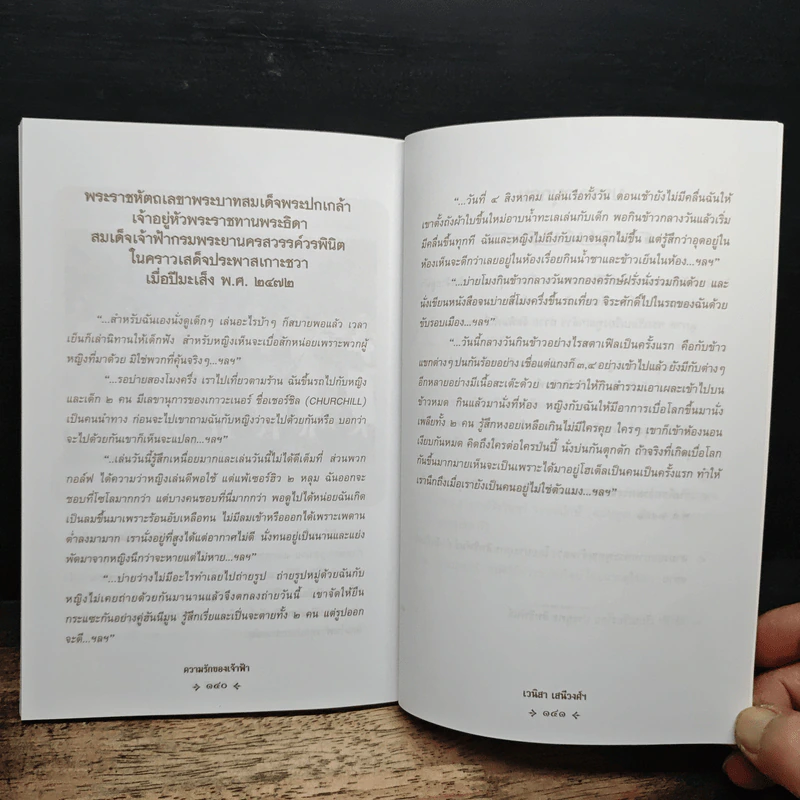 พระราชหัตถเลขาพระบาทสมเด็จพระปกเกล้า
เจ้าอยู่หัวพระราชทานพระธิดา
สมเด็จเจ้าฟ้ากรมพระยานครสวรรค์วรพินิต
ในคราวเสด็จประพาสเกาะชวา
เมื่อปีมะเส็ง พ.ศ. ๒๔๗๒
“...สำหรับฉันเองนั่งดูเด็กๆ เล่นอะไรบ้าๆ ก็สบายพอแล้ว เวลา
เย็นก็เล่านิทานให้เด็กฟัง สำหรับหญิงเห็นจะเบื่อสักหน่อยเพราะพวกผู้
หญิงที่มาด้วย มิใช่พวกที่คุ้นจริงๆ...ฯลฯ”
“...รอบ่ายสองโมงครึ่ง เราไปเที่ยวตามร้าน ฉันขึ้นรถไปกับหญิง
และเด็ก ๒ คน มีเลขานุการของเกาวะเนอร์ ชื่อเชอร์ชิล (CHURCHILL)
เป็นคนนำทาง ก่อนจะไปเขาถามฉันกับหญิงว่าจะไปด้วยกันหรือ บอกว่า
จะไปด้วยกันเขาก็เห็นจะแปลก...ฯลฯ”
“..เล่นวันนี้รู้สึกเหนื่อยมากและเล่นวันนี้ไม่ได้ดีเต็มที่ ส่วนพวก
กอล์ฟ ได้ความว่าหญิงเล่นดีพอใช้ แต่แพ้เซอร์ฮิว ๒ หลุม ฉันออกจะ
ชอบที่โซโลมากกว่า แต่บางคนชอบที่นี่มากกว่า พอดูไปได้หน่อยฉันเกิด
เป็นลมขึ้นมาเพราะร้อนอับเหลือทน ไม่มีลมเข้าหรือออกได้เพราะเพดาน
ต่ำลงมามาก เรานั่งอยู่ที่สูงได้แต่อากาศไม่ดี นั่งทนอยู่เป็นนานและแย่ง
พัดมาจากหญิงนึกว่าจะหายแต่ไม่หาย...ฯลฯ”
“...บ่ายว่างไม่มีอะไรทำเลยไปถ่ายรูป ถ่ายรูปหมู่ด้วยฉันกับ
หญิงไม่เคยถ่ายด้วยกันมานานแล้วจึงตกลงถ่ายวันนี้ เขาจัดให้ยืน
กระแซะกันอย่างคู่ฮันนีมูน รู้สึกเรี่ยและเป็นจะตายทั้ง ๒ คน แต่รูปออก
จะดี...ฯลฯ”
ความรักของเจ้าฟ้า
๑๔๐
“...วันที่ ๔ สิงหาคม แล่นเรือทั้งวัน ตอนเช้ายังไม่มีคลื่นฉันให้
เขาตั้งถังผ้าใบขึ้นใหม่อาบน้ำทะเลเล่นกับเด็ก พอกินข้าวกลางวันแล้วเริ่ม
มีคลื่นขึ้นทุกที ฉันและหญิงไม่ถึงกับเมาจนลุกไม่ขึ้น แต่รู้สึกว่าอุดอยู่ใน
ห้องเห็นจะดีกว่าเลยอยู่ในห้องเรื่อยกินน้ำชาและข้าวเย็นในห้อง...ฯลฯ”
“...บ่ายโมงกินข้าวกลางวันพวกองครักษ์ฝรั่งนั่งร่วมกินด้วย และ
นั่งเขียนหนังสือจนบ่ายสี่โมงครึ่งขึ้นรถเที่ยว จิระศักดิ์ไปในรถของฉันด้วย
ขับรอบเมือง...ฯลฯ”
“...วันนี้กลางวันกินข้าวอย่างไรสตาเฟิลเป็นครั้งแรก คือกับข้าว
แขกต่างๆ ปนกันร้อยอย่าง เชื่อแต่แกงก็ ๓,๔ อย่างเข้าไปแล้ว ยังมีกับต่างๆ
อีกหลายอย่างมีเนื้อสะเต๊ะด้วย เขากะว่าให้กินสำรวมเอาเผละเข้าไปบน
ข้าวหมด กินแล้วมานั่งที่ห้อง หญิงกับฉันให้มีอาการเบื่อโลกขึ้นมานั่ง
เพลียทั้ง ๒ คน รู้สึกหงอยเหลือเกินไม่มีใครคุย ใครๆ เขาก็เข้าห้องนอน
เงียบกันหมด คิดถึงใครต่อใครป่นปี้ นั่งบ่นกันตุกตัก ถ้าจริงที่เกิดเบื่อโลก
กันขึ้นมากมายเห็นจะเป็นเพราะได้มาอยู่โฮเต็ลเป็นคนเป็นครั้งแรก ทำให้
เรานึกถึงเมื่อเรายังเป็นคนอยู่ไม่ใช่ตัวแมง...ฯลฯ”
เวนิสา เสนีวงศ์ฯ
๑๔๑